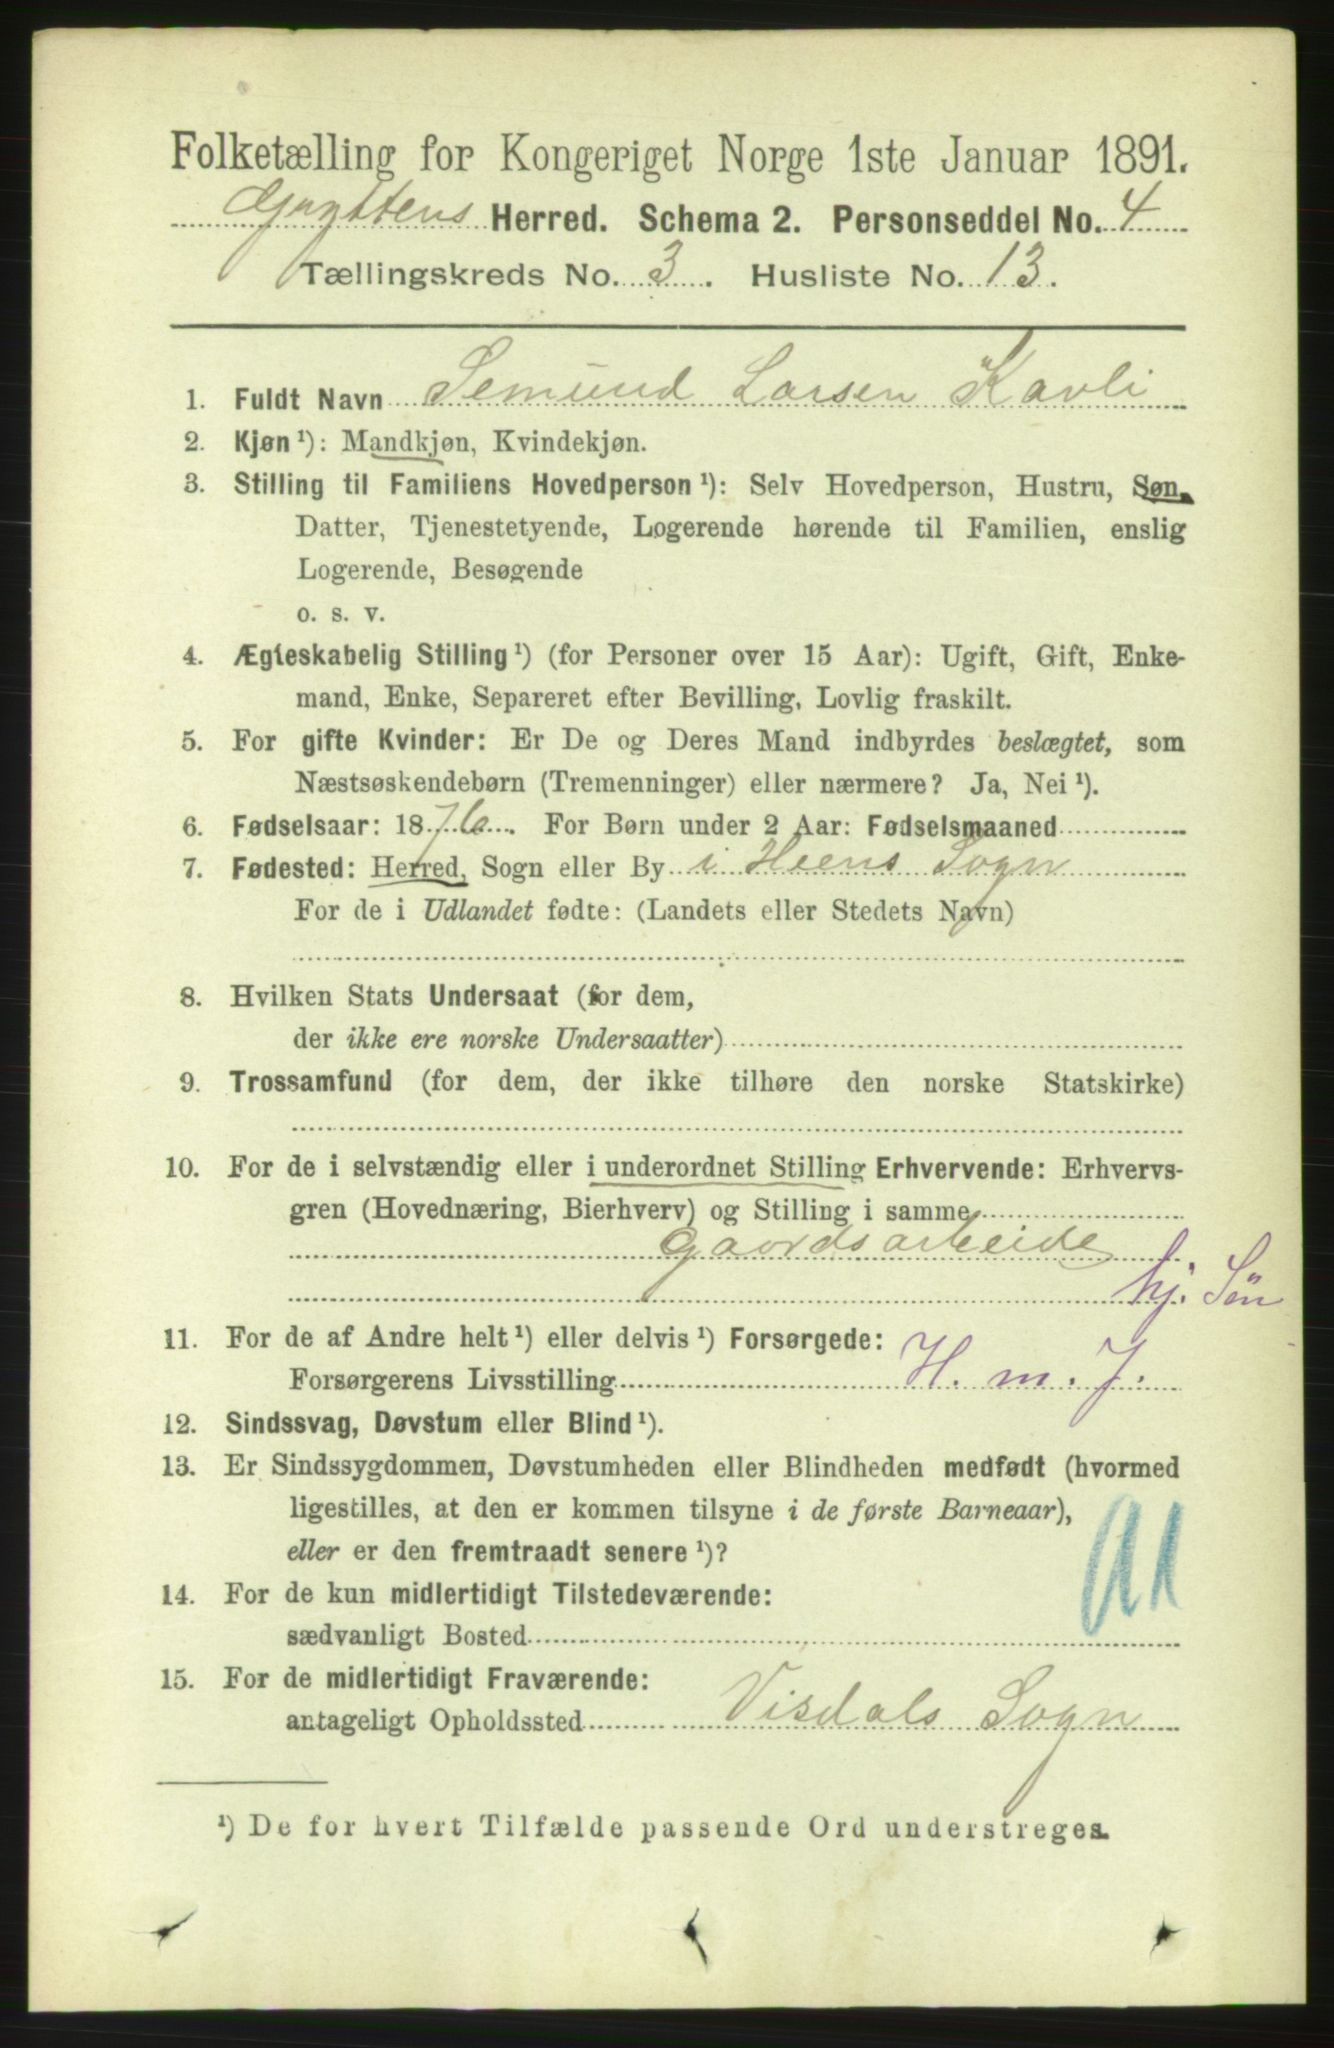 Folketælling for Kongeriget Norge 1ste Januar 1891.
Gryttens Herred. Schema 2. Personseddel No. 4
Tællingskreds No. 3. Husliste No. 13.
1. Fuldt Navn Semund Larsen Kavli
2. Kjøn ¹): Mandkjøn, Kvindekjøn.
3. Stilling til Familiens Hovedperson ¹): Selv Hovedperson, Hustru, Søn,
Datter, Tjenestetyende, Logerende hørende til Familien, enslig
Logerende, Besøgende
o. s. v.
4. Ægteskabelig Stilling ¹) (for Personer over 15 Aar): Ugift, Gift, Enke-
mand, Enke, Separeret efter Bevilling, Lovlig fraskilt.
5. For gifte Kvinder: Er De og Deres Mand indbyrdes beslægtet, som
Næstsøskendebørn (Tremenninger) eller nærmere? Ja, Nei ¹).
6. Fødselsaar: 1876. For Børn under 2 Aar: Fødselsmaaned
7. Fødested: Herred, Sogn eller By i Heens Sogn
For de i Udlandet fødte: (Landets eller Stedets Navn)
8. Hvilken Stats Undersaat (for dem,
der ikke ere norske Undersaatter)
9. Trossamfund (for dem, der ikke tilhøre den norske Statskirke)
10. For de i selvstændig eller i underordnet Stilling Erhvervende: Erhvervs-
gren (Hovednæring, Bierhverv) og Stilling i samme
Gaardsarbeide
hj. Søn
11. For de af Andre helt ¹) eller delvis ¹) Forsørgede:
Forsørgerens Livsstilling H. m. J.
12. Sindssvag, Døvstum eller Blind ¹).
13. Er Sindssygdommen, Døvstumheden eller Blindheden medfødt (hvormed
ligestilles, at den er kommen tilsyne i de første Barneaar),
eller er den fremtraadt senere ¹)?
14. For de kun midlertidigt Tilstedeværende:
sædvanligt Bosted
15. For de midlertidigt Fraværende:
antageligt Opholdssted Visdals Sogn
¹) De for hvert Tilfælde passende Ord understreges.